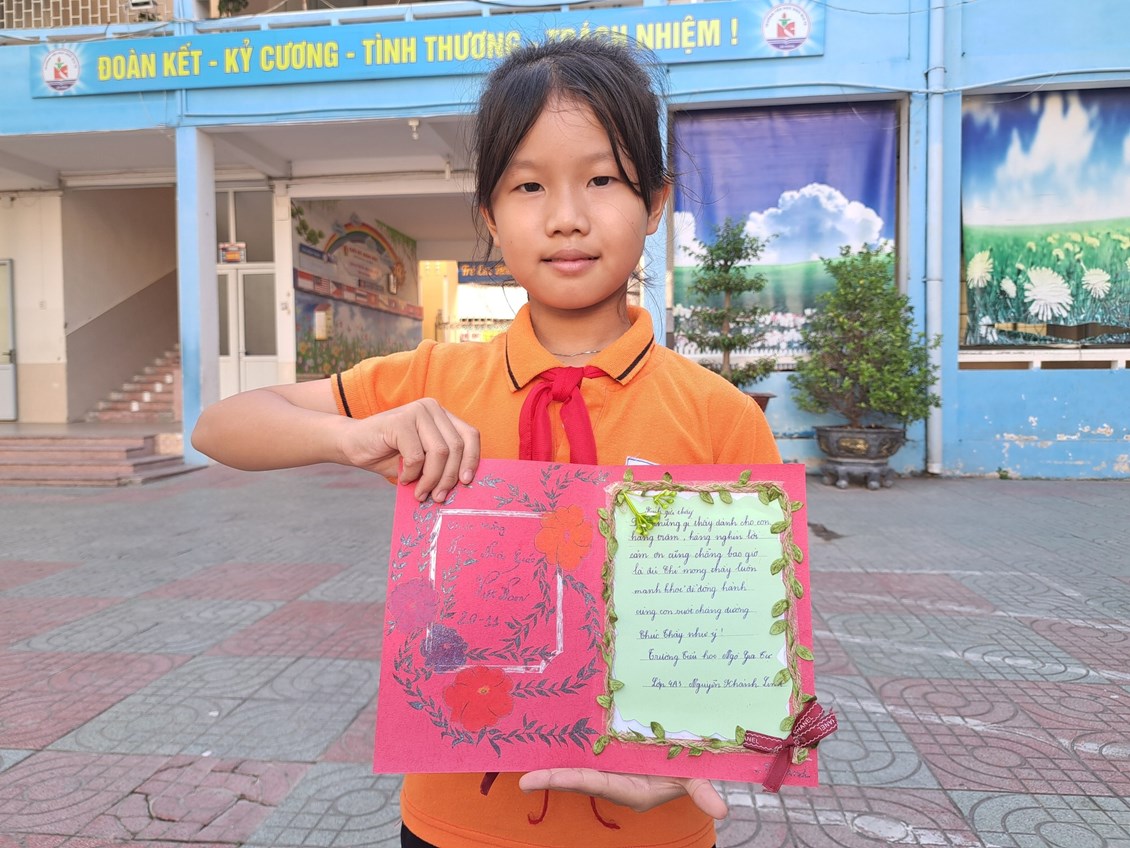 ĐOÀN KẾT - KỶ CƯƠNG - TÌNH THƯƠNG - TRÁCH NHIỆM !
Kính gửi thầy
những gì thầy dành cho con
hàng trăm, hàng nghìn lời
cảm ơn cũng chẳng bao giờ
là đủ. Chỉ mong thầy luôn
mạnh khoẻ để đồng hành
cùng con suốt chặng đường
Chúc Thầy như ý !
Trường Tiểu học Ngô Gia Tự
Lớp 4A5 Nguyễn Khánh Linh
Việt Nam
20-11